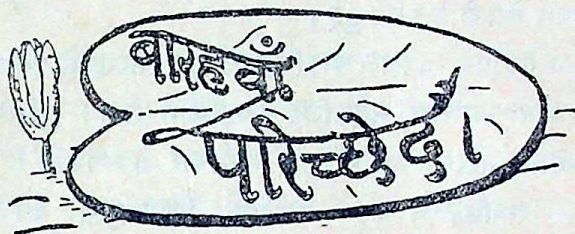 बारहवाँ
परिच्छेद।